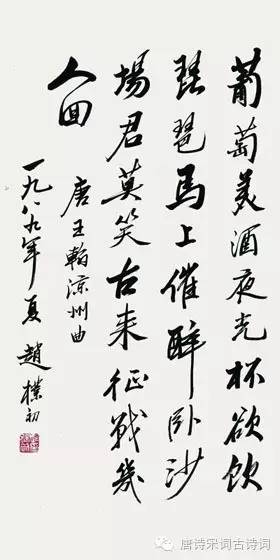 葡萄美酒夜光杯欲飲
琵琶馬上催醉卧沙
場君莫笑古来征戰幾
人回
唐王翰涼州曲
一九八九年夏趙樸初
唐诗宋词古诗词